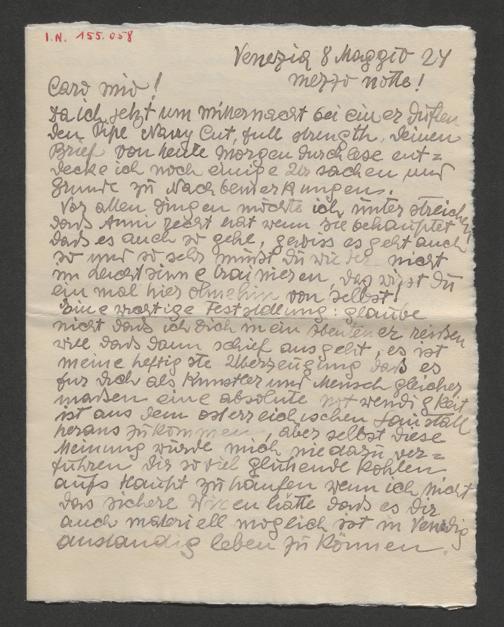 I.N. 155.058
Venezia 8 Maggio 24
mezzo notte!
Caro mio!
Da ich jetzt um Mitternacht bei einer duften
den Pipe Navy Cut, full strength, Deinen
Brief von heute morgen durchlese ent=
decke ich noch einige Ursachen und
Gründe zu Nachbemerkungen.
Vor allen Dingen möchte ich unterstreichen
dass Anni recht hat wenn sie behauptet
dass es auch so gehe, gewiss es geht auch
so und so sehr musst Du wieder nicht
im Leichtsinne trainieren, das wirst Du
ein mal hier ohnehin von selbst!
Eine wichtige Feststellung: glaube
nicht dass ich Dich in ein Abenteuer reißen
will dass dann schief ausgeht, es ist
meine heftigste Überzeugung dass es
für Dich als Künstler und Mensch gleicher
maßen eine absolute Notwendigkeit
ist aus dem österreichischen Saustall
heraus zu kommen, aber selbst diese
Meinung würde mich nie dazu ver=
führen Dir so viel glühende Kohlen
aufs Haupt zu häufen wenn ich nicht
das sichere Wissen hätte dass es Dir
auch materiell möglich ist in Venedig
anständig leben zu können.